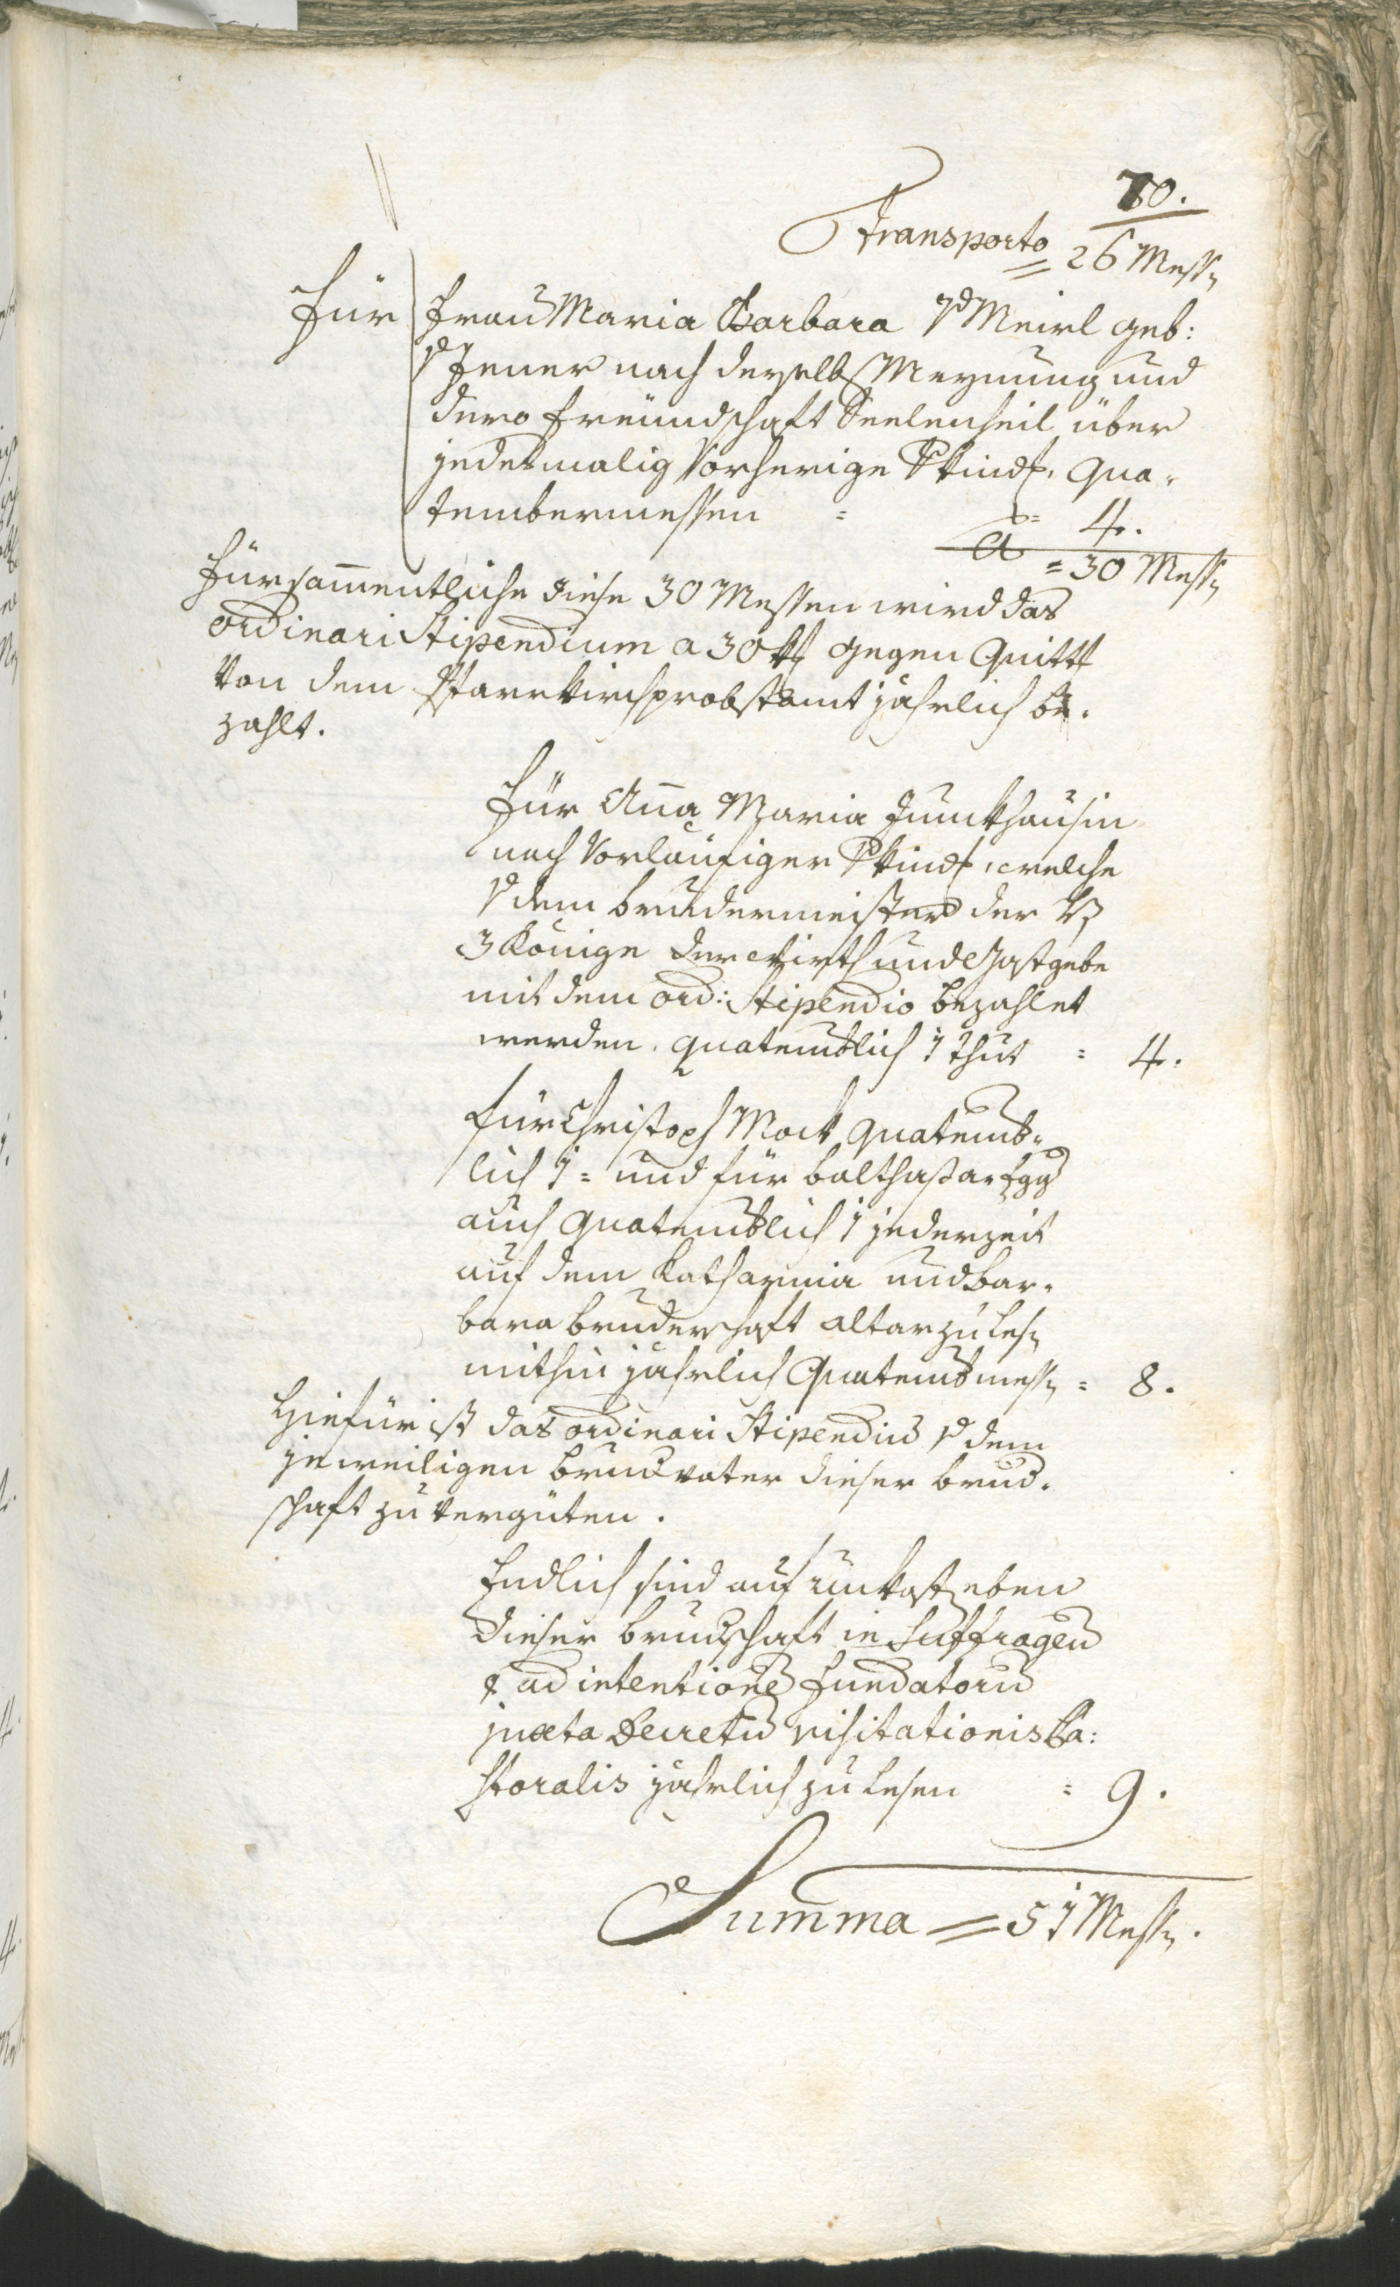 70.
Transporto = 26 Messn
Für Frau Maria Barbara v Meirl geb:
v Jener nach derselbn Meynung und
dero Freundschaft Seelenheil über
jedesmalig vorherige Vkindt. Qua-
tembermessen = a = 4.
= 30 Messn
Für sam̄entliche diese 30 Messen wird das
ordinari Stipendium a 30 kr gegen Quittt
von dem Pfarrkirchprobstamt jährlich be-
zahlt.
Für Ana Maria Junkhausin
nach vorläufiger Vkindt, welche
v dem Brudermeister der H
3 Könige der Wirth und Gastgebe
mit dem ord: Stipendio bezahlet
werden. quatemblich 1 thut = 4.
Für Christoph Mock quatemb-
lich 1 = und für Balthasar Egg
auch quatemblich 1 jederzeit
auf dem Katharina und Bar-
bara Bruderschaft Altar zu lesn
mithin jährlich Quatembmessn = 8.
Hiefür ist das ordinari Stipendiu v dem
jeweiligen Brudvater dieser Brud-
schaft zu vergüten.
Endlich sind auf Unkostn eben
dieser Brudschaft in Suffragen
& ad intentione Fundatoru
juxta Decretu visitationis Pa:
storalis jährlich zu lesen = 9.
Summa = 51 Messn.